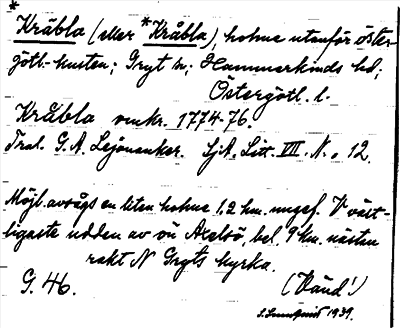 *Kräbla (eller *Kråbla), holme utanför Öster-
götl.-kusten; Gryt sn; Hammarkinds hd;
Östergötl. l.
Kråbla omkr. 1774-76.
Tral. G. A. Lejonanker. SjK. Litt. VII. N:o 12.
Möjl. avsågs en liten holme 1,2 km. ungef. V väst-
ligaste udden av ön Axelsö, bel. 9 km. nästan
rakt N Gryts kyrka.
G. 46. (Känd!)
1939.